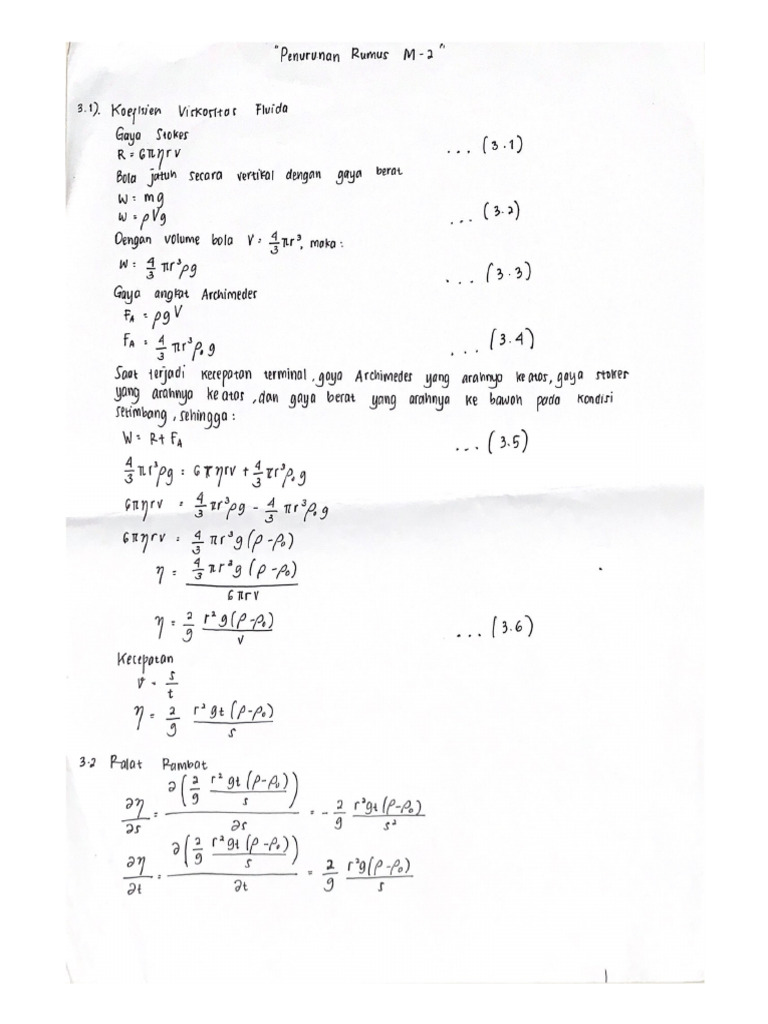 "Penurunan Rumus M-2"
3.1). Koefisien Viskositas Fluida
Gaya Stokes
R = 6πηrv ... (3.1)
Bola jatuh secara vertikal dengan gaya berat
W = mg
W = ρVg ... (3.2)
Dengan volume bola V = 4/3 πr³, maka :
W = 4/3 πr³ρg ... (3.3)
Gaya angkat Archimedes
F_A = ρgV
F_A = 4/3 πr³ρ₀g ... (3.4)
Saat terjadi kecepatan terminal, gaya Archimedes yang arahnya ke atas, gaya stokes
yang arahnya ke atas, dan gaya berat yang arahnya ke bawah pada kondisi
setimbang, sehingga :
W = R + F_A ... (3.5)
4/3 πr³ρg = 6πηrv + 4/3 πr³ρ₀g
6πηrv = 4/3 πr³ρg - 4/3 πr³ρ₀g
6πηrv = 4/3 πr³g (ρ-ρ₀)
η = 4/3 πr³g (ρ-ρ₀) / 6πrv
η = 2/9 r²g(ρ-ρ₀) / v ... (3.6)
Kecepatan
v = s/t
η = 2/9 r²gt(ρ-ρ₀) / s
3.2 Ralat Rambat
∂η/∂s = ∂(2/9 r²gt(ρ-ρ₀)/s) / ∂s = - 2/9 r²gt(ρ-ρ₀) / s²
∂η/∂t = ∂(2/9 r²gt(ρ-ρ₀)/s) / ∂t = 2/9 r²g(ρ-ρ₀) / s